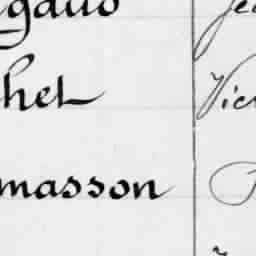 gaud Je
hel Vic
masson